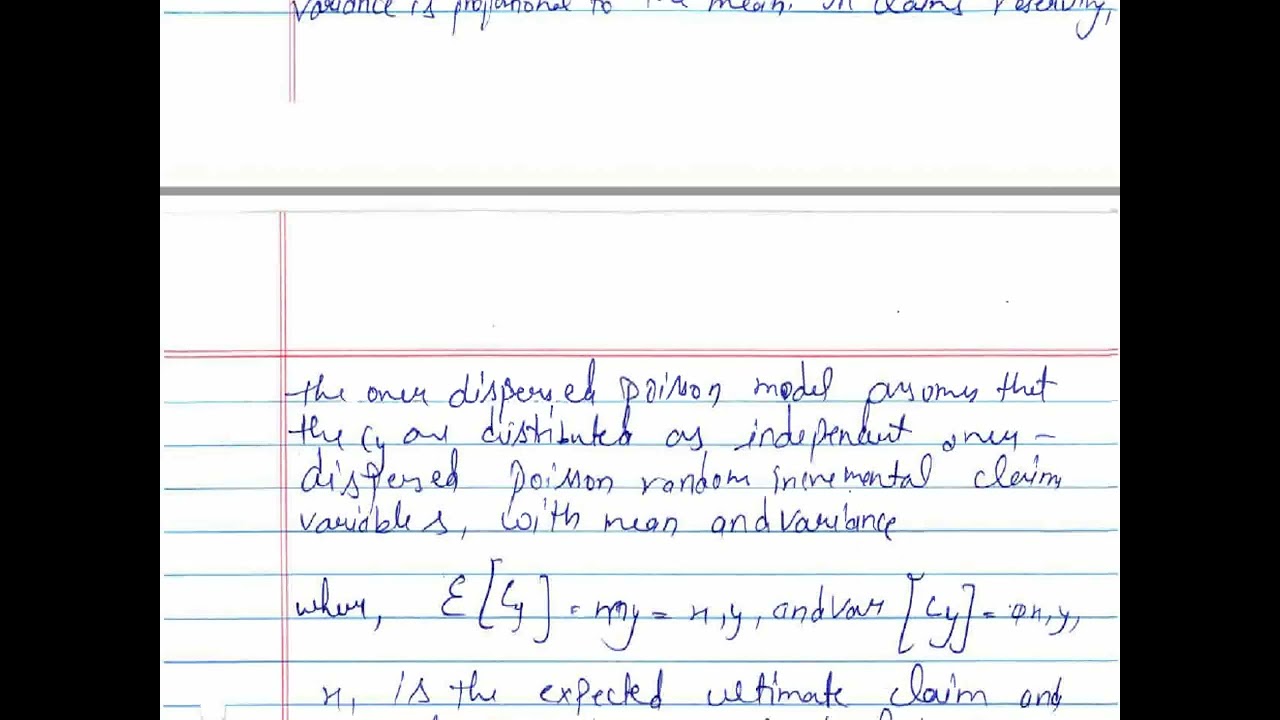 variance is propotional to the mean. In claims reserving,
the over dispersed poisson model assumes that
the Cy are distributed as independent over-
dispersed poisson random incremental claim
variables, with mean and variance
where, E[Cy] = my = x,y, and var [Cy] = φx,y,
x, is the expected ultimate claim and